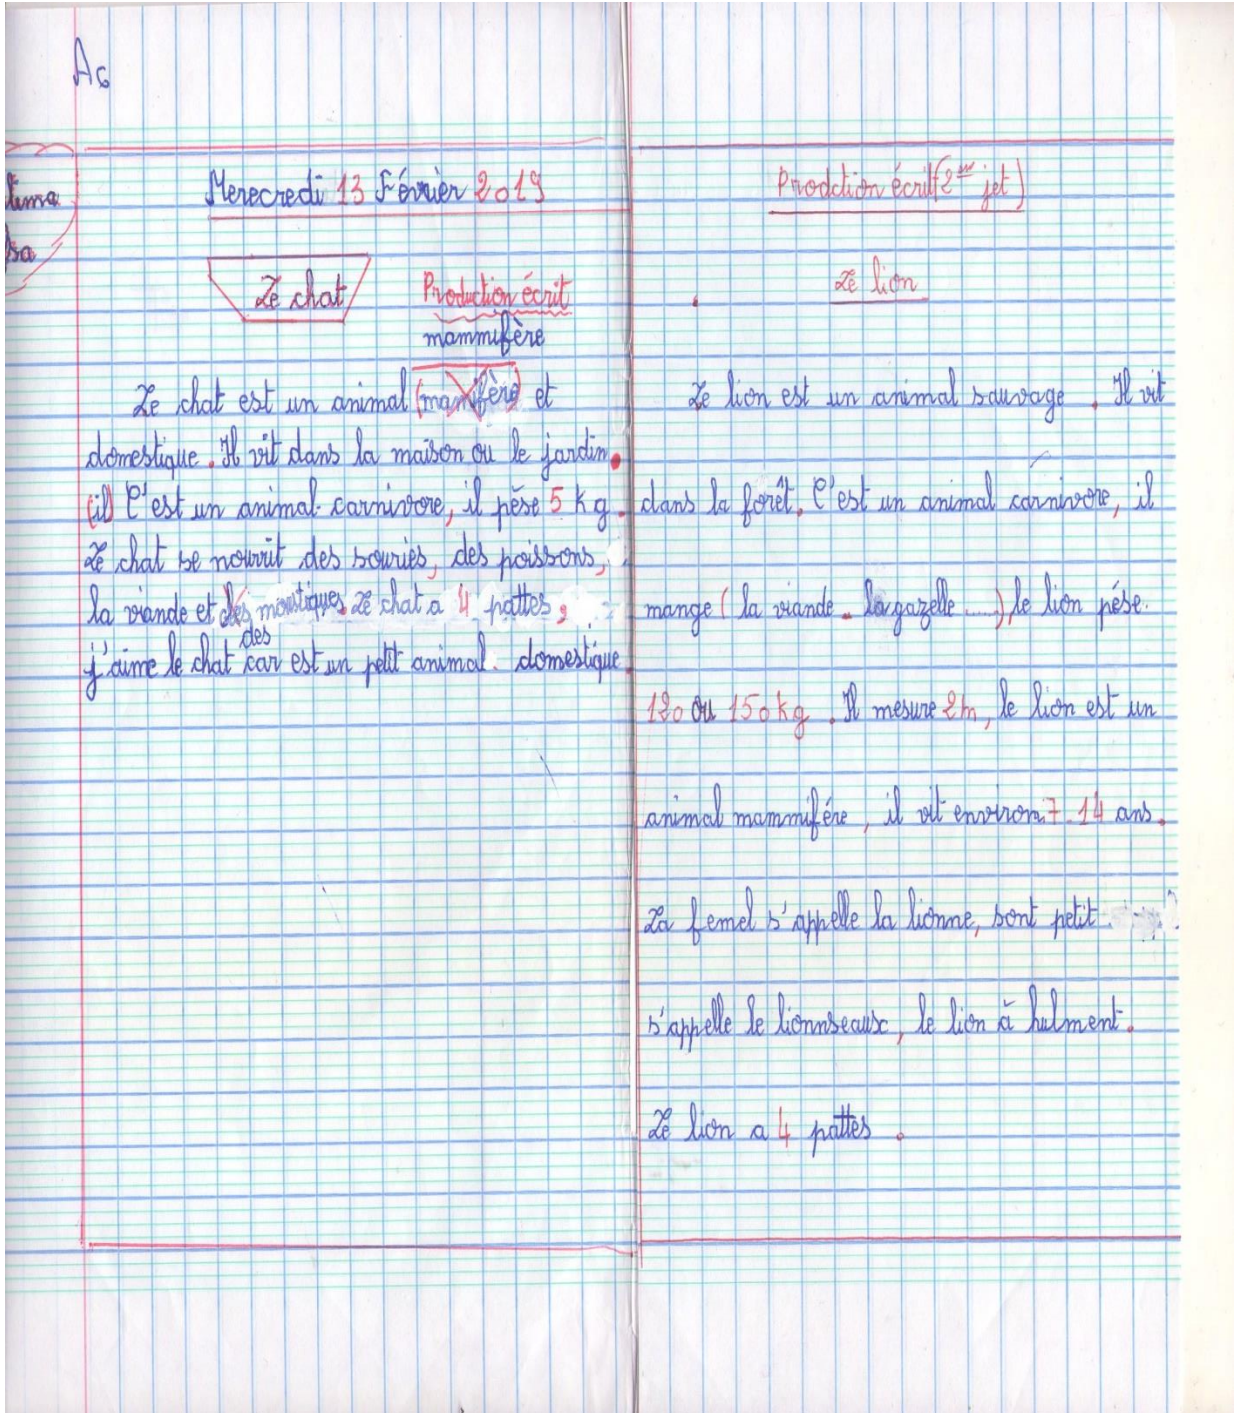 A6
tima
sa
Merecredi 13 Février 2019
Le chat
Production écrit
mammifère
Le chat est un animal (mamifère) et
domestique. Il vit dans la maison ou le jardin.
(il) C'est un animal carnivore, il pèse 5 kg.
Le chat se nourrit des souriès, des poissons,
la viande et des moustiques. Le chat a 4 pattes.
des
j'aime le chat car est un petit animal. domestique.
Prodction écrit (2ème jet)
Le lion
Le lion est un animal sauvage. Il vit
dans la forêt. C'est un animal carnivore, il
mange (la viande - la gazelle .....), le lion pése.
120 ou 150 kg. Il mesure 2m, le lion est un
animal mammifére, il vit environ 7-14 ans.
La femel s'appelle la lionne, sont petit
s'appelle le lionnseaux, le lion à hulment.
Le lion a 4 pattes.